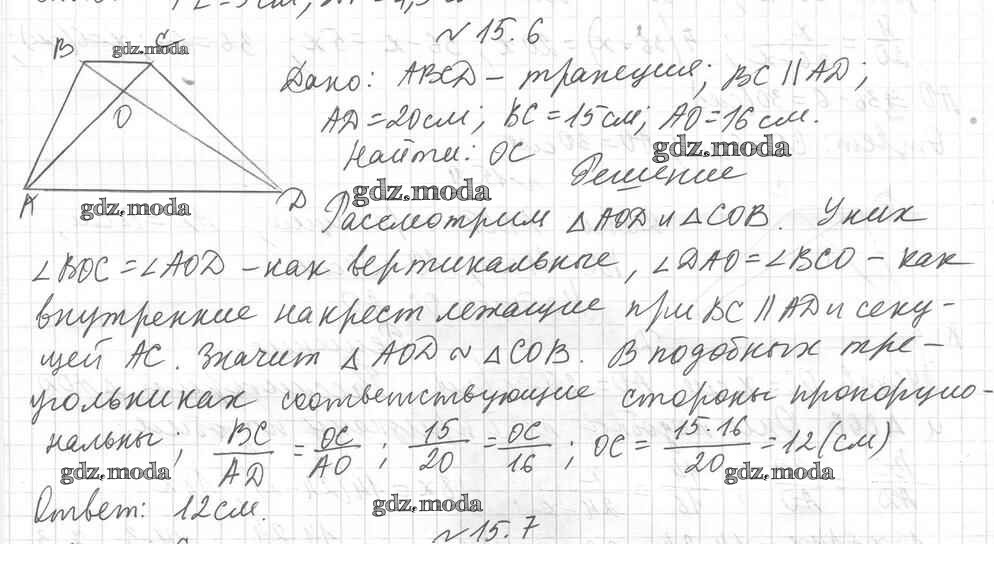 № 15.6
B C
gdz.moda
Дано: ABCD – трапеция; BC || AD;
O
AD = 20 см; BC = 15 см; AO = 16 см.
Найти: OC
gdz.moda
Решение
A D
gdz.moda
gdz.moda
Рассмотрим △ AOD и △ COB. У них
∠BOC = ∠AOD – как вертикальные, ∠DAO = ∠BCO – как
внутренние накрест лежащие при BC || AD и секу-
щей AC. Значит △ AOD ~ △ COB. В подобных тре-
угольниках соответствующие стороны пропорцио-
нальны; BC/AD = OC/AO; 15/20 = OC/16; OC = 15·16/20 = 12 (см)
gdz.moda
gdz.moda
Ответ: 12 см.
gdz.moda
№ 15.7